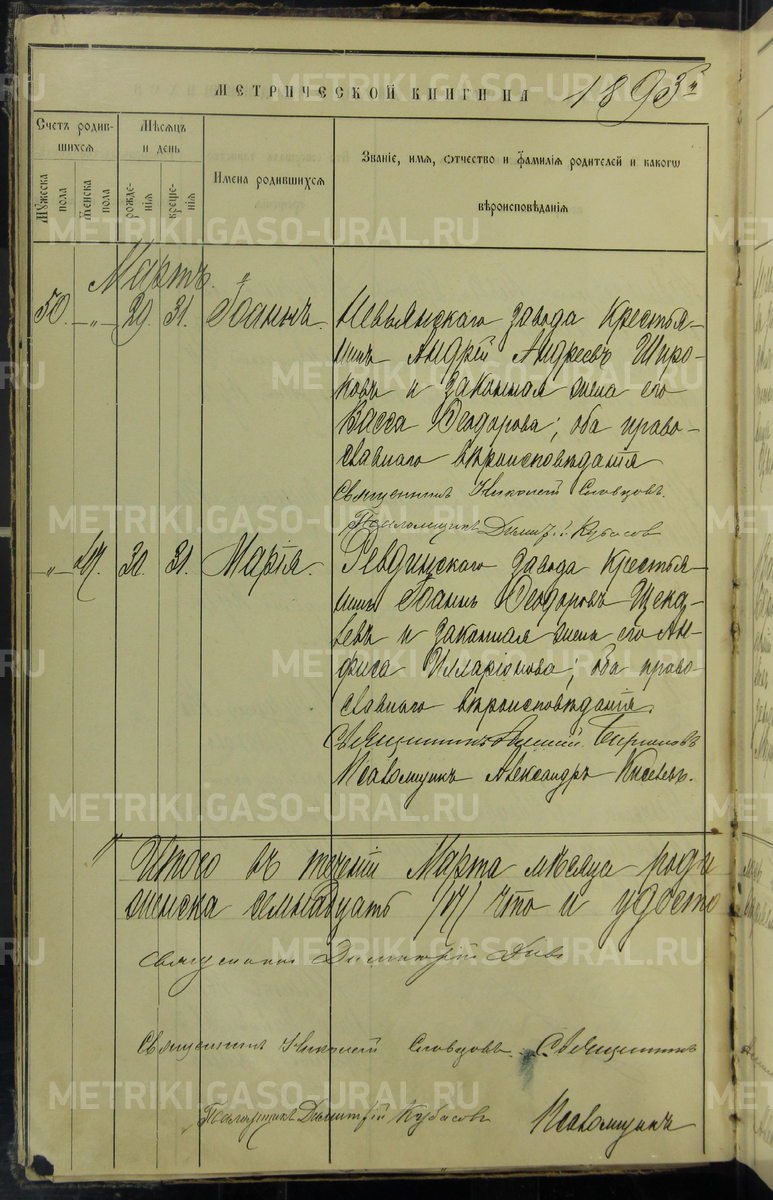 МЕТРИЧЕСКОЙ КНИГИ НА 1893 й
Счетъ родив-
шихся
Мѣсяцъ
и день
Имена родившихся
Званіе, имя, отчество и фамилія родителей и какого
вѣроисповѣданія
Мужеска
пола
Женска
пола
рожде-
нія
креще-
нія
Мартъ.
50. — „ — 29. 31. Іоаннъ. Невьянскаго завода Крестья-
нинъ Андрей Андреевъ Широ-
ковъ и законная жена его
Васса Ѳеодорова; оба право-
славнаго вѣроисповѣданія
Священникъ Николай Словцовъ.
Псаломщикъ Димитрій Кубасов
— „ — 17. 30. 31. Марія. Ревдинскаго завода Крестья-
нинъ Іоаннъ Ѳеодоровъ Щека-
левъ и законная жена его Ан-
фиса Илларіонова; оба право-
славнаго вѣроисповѣданія.
Священникъ
Псаломщикъ Александръ Киселевъ.
Итого въ теченіи Марта мѣсяца роди
женска семьнадцать /17/ что и удосто
Священникъ Димитрій
Священникъ Николай Словцовъ. Священникъ
Псаломщикъ Димитрій Кубасовъ Псаломщикъ
METRIKI.GASO-URAL.RU